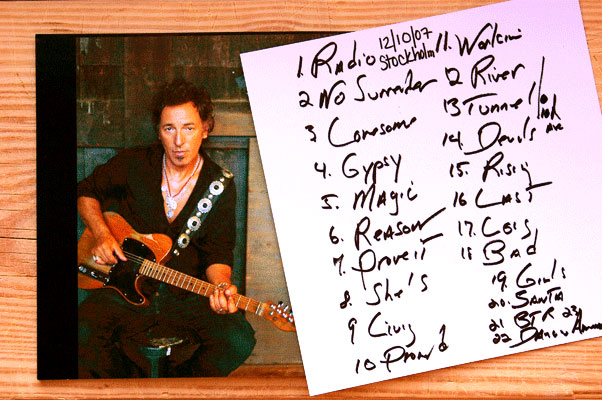 12/10/07
Stockholm
1. Radio
2 No Surrender
3 Lonesome
4. Gypsy
5. Magic
6. Reason
7. Prove it
8. She's
9 Livin
10 Prom'd
11. Workin
12 River
13 Tunnel /
14. Devils
15. Rising
16 Last
17. Long
18 Bad
19. Girls
20. Santa
21. BTR 23
22.